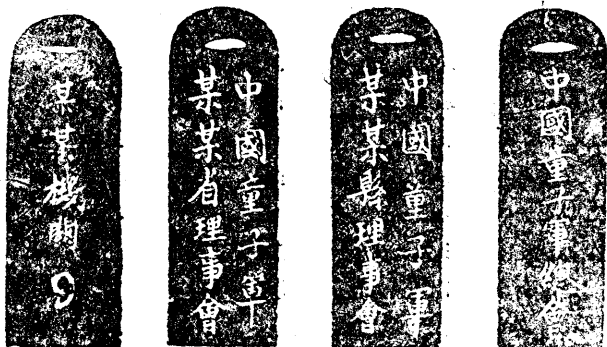 中國童子軍總會
中國童子軍
某某縣理事會
中國童子軍
某某省理事會
某某機關